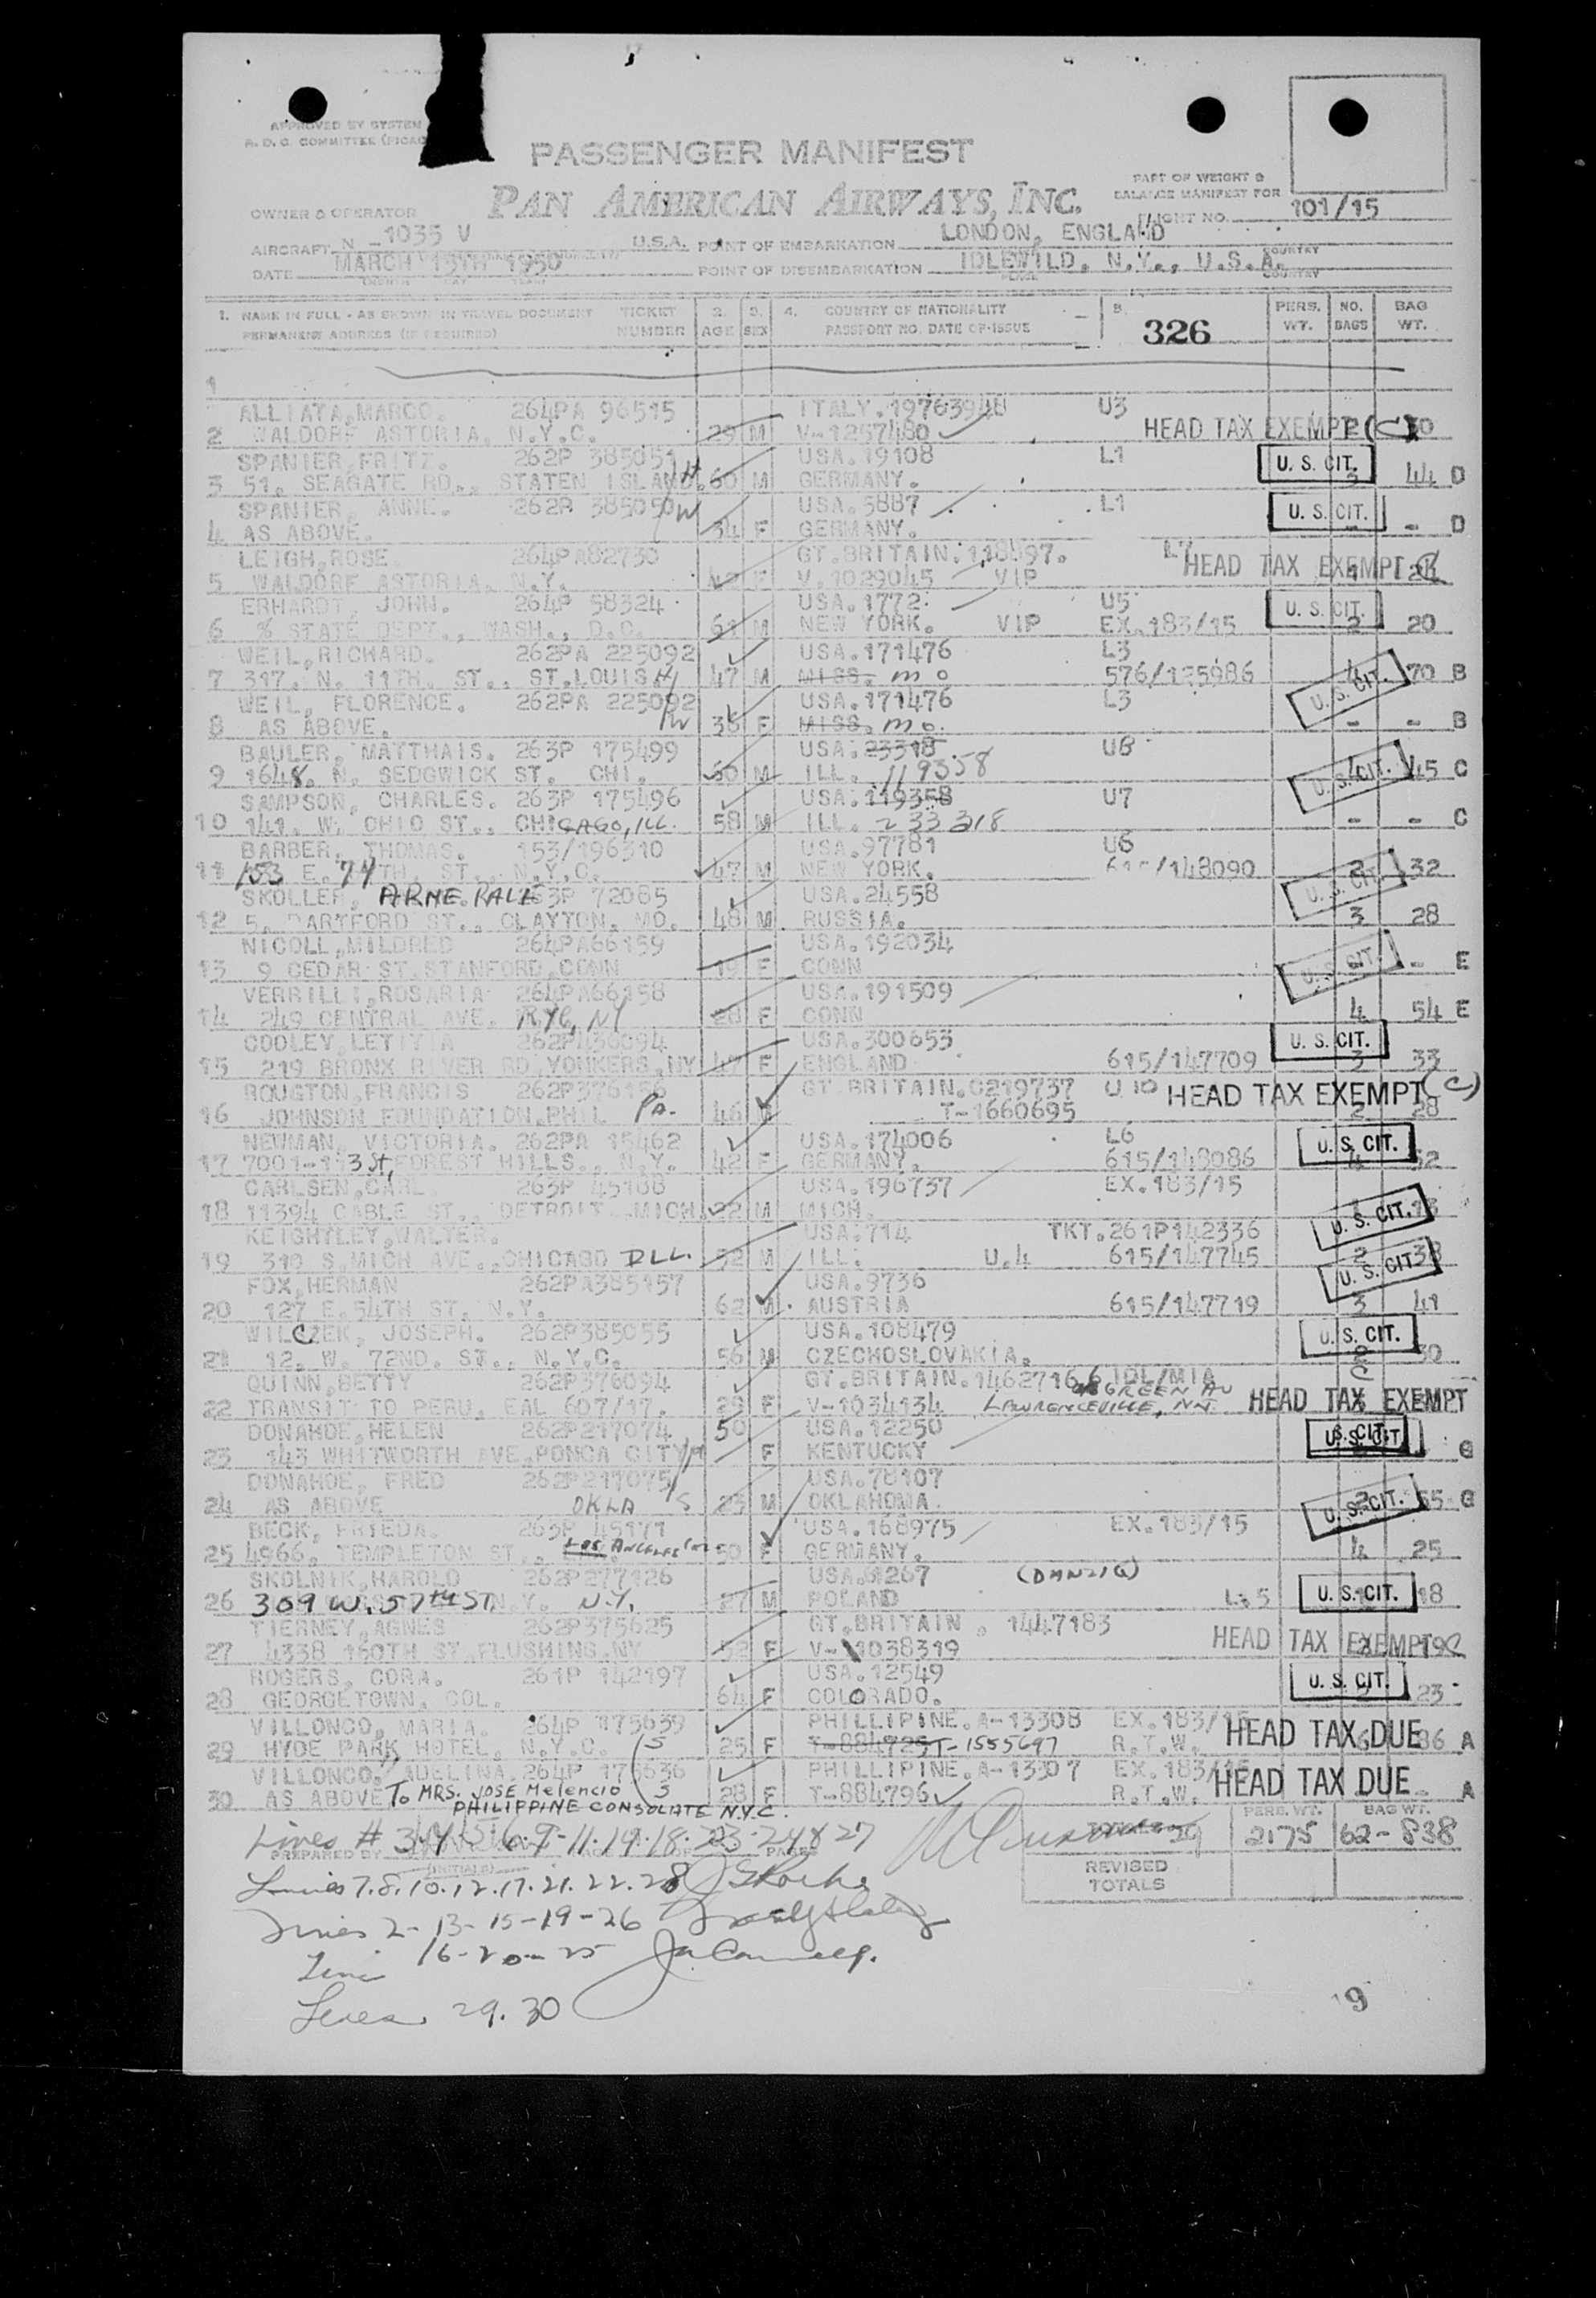 APPROVED BY SYSTEM
A.D.C. COMMITTEE
PASSENGER MANIFEST
PAN AMERICAN AIRWAYS, INC.
PART OF WEIGHT &
BALANCE MANIFEST FOR
FLIGHT NO. 101/15
OWNER & OPERATOR
AIRCRAFT N 1035 V U.S.A. POINT OF EMBARKATION LONDON, ENGLAND
DATE MARCH 15TH 1950 POINT OF DISEMBARKATION IDLEWILD. N.Y., U.S.A. COUNTRY
1. NAME IN FULL - AS SHOWN IN TRAVEL DOCUMENT TICKET 2. 3. 4. COUNTRY OF NATIONALITY 5. PERS. NO. BAG
PERMANENT ADDRESS (IF REQUIRED) NUMBER AGE SEX PASSPORT NO. DATE OF ISSUE 326 WT. BAGS WT.
1
ALLIATA, MARCO. 264PA 96515 ITALY. U3
2 WALDORF ASTORIA. N.Y.C. 29 M V-1257480 HEAD TAX EXEMPT (C)
SPANIER, FRITZ. 262P 385051 USA. 19108 L1 U. S. CIT.
3 51. SEAGATE RD., STATEN ISLAND. H 60 M GERMANY. 3 44 D
SPANIER, ANNE. 262P 385050 W USA. 5887 L1 U. S. CIT.
4 AS ABOVE. 54 F GERMANY. - - D
LEIGH, ROSE 264PA82730 GT. BRITAIN. L7 HEAD TAX EXEMPT
5 WALDORF ASTORIA. N.Y. F V.1029045 VIP
ERHARDT, JOHN. 264P 58324 USA. 1772. U5 U. S. CIT.
6 % STATE DEPT., WASH., D.C. 61 M NEW YORK. VIP EX.183/15 2 20
WEIL, RICHARD. 262PA 225092 USA. 171476 L3
7 317. N. 11TH. ST., ST.LOUIS H 47 M MISS. mo 576/125986 U. S. CIT. 70 B
WEIL, FLORENCE. 262PA 225092 USA. 171476 L3
8 AS ABOVE. W F MISS. mo. - - B
BAULER, MATTHAIS. 263P 175499 USA. 23318 U8
9 1648. N. SEDGWICK ST. CHI. 60 M ILL. 119358 U. S. CIT. 45 C
SAMPSON, CHARLES. 263P 175496 USA. 119358 U7
10 141. W. OHIO ST., CHICAGO, ILL. 58 M ILL. 233318 - - C
BARBER, THOMAS. 153/196310 USA. 97781 U6
11 153 E. 74TH. ST., N.Y.C. 47 M NEW YORK. 615/148090 U. S. CIT. 32
SKOLLER, ARNE. 263P 72085 USA. 24558
12 5. DARTFORD ST., CLAYTON. MO. 48 M RUSSIA. 3 28
NICOLL, MILDRED 264PA66159 USA. 192034
13 9 CEDAR ST. STANFORD, CONN 19 F CONN U. S. CIT. - E
VERRILLI, ROSARIA 264PA66158 USA. 191509
14 249 CENTRAL AVE. RYE, NY 28 F CONN 4 54 E
COOLEY, LETITIA 262P436094 USA. 300653 U. S. CIT.
15 219 BRONX RIVER RD YONKERS, NY F ENGLAND 615/147709 3 33
ROUGTON, FRANCIS 262P376156 GT BRITAIN. C219737 U 10 HEAD TAX EXEMPT (C)
16 JOHNSON FOUNDATION, PHIL PA. 46 M T-1660695 2 28
NEUMAN, VICTORIA. 262PA 15462 USA. 174006 L6 U. S. CIT.
17 7001-113 St, FOREST HILLS., N.Y. 42 F GERMANY. 615/148086 4 52
CARLSEN, CARL. 263P 45188 USA. 196737 EX.183/15
18 11394 CABLE ST., DETROIT MICH. 22 M MICH. U. S. CIT. 13
KEIGHTLEY, WALTER. USA. 714 TKT. 261P142336
19 310 S. MICH AVE., CHICAGO ILL. 52 M ILL. U.4 615/147745 U. S. CIT. 2 38
FOX, HERMAN 262PA385157 USA. 9736
20 127 E. 54TH ST. N.Y. 62 M AUSTRIA 615/147719 3 41
WILCZEK, JOSEPH. 262P385055 USA. 108479 U. S. CIT.
21 12. W. 72ND. ST., N.Y.C. 56 M CZECHOSLOVAKIA. 30
QUINN, BETTY 262P376094 GT. BRITAIN. 1462716 IDL/MIA
22 TRANSIT TO PERU, EAL 607/17. 29 F V-1034134 GREEN AV LAWRENCEVILLE, HEAD TAX EXEMPT
DONAHOE, HELEN 262P217074 50 USA. 12250
23 143 WHITWORTH AVE, PONCA CITY F KENTUCKY U. S. CIT. G
DONAHOE, FRED 262P217075 USA. 78107
24 AS ABOVE OKLA S 23 M OKLAHOMA. U. S. CIT. 2 55 G
BECK, FRIEDA. 263P 45171 USA. 168975 EX.183/15
25 4966. TEMPLETON ST., LOS ANGELES 50 F GERMANY. 4 25
SKOLNIK, HAROLD 262P277126 USA. (DANZIG)
26 309 W. 57TH ST N.Y. 27 M POLAND L. 5 U. S. CIT. 18
TIERNEY, AGNES 262P375625 GT. BRITAIN . 1447183
27 4338 160TH ST. FLUSHING, NY F V-1038319 HEAD TAX EXEMPT C
ROGERS, CORA. 261P 142197 USA. 12549
28 GEORGETOWN, COL. 64 F COLORADO. U. S. CIT. 23
VILLONCO, MARIA. 264P 175639 PHILLIPINE. A-13308 EX.183/15
29 HYDE PARK HOTEL, N.Y.C. S 25 F T-1555697 R.T.W. HEAD TAX DUE 86 A
VILLONCO, ADELINA. 264P 175636 PHILLIPINE. A-13307 EX.183/15
30 AS ABOVE To MRS. JOSE Melencio S 28 F T-884796 R.T.W. HEAD TAX DUE - A
PHILIPPINE CONSOLATE N.Y.C.
PERS. WT. BAG WT.
Lines # 3.4 5.6.9-11.14.18.23.24 & 27 29 2175 62-838
PREPARED BY (INITIALS) PAGES
REVISED TOTALS
Lines 7.8.10.12.17.21.22.28
Lines 2-13-15-19-26
Line 16-20-25
Lines 29.30
9